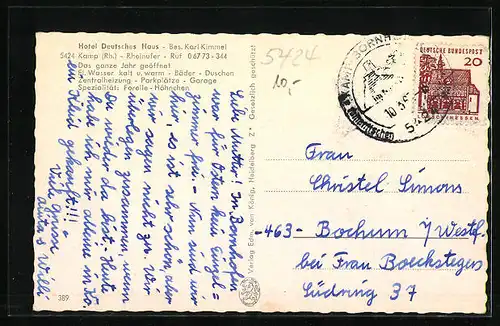 Hotel Deutsches Haus - Bes. Karl Kimmel
5424 Kamp (Rh.) - Rheinufer - Ruf 06773-344
Das ganze Jahr geöffnet
Fl. Wasser kalt u. warm - Bäder - Duschen
Zentralheizung - Parkplätze - Garage
Spezialität: Forelle - Hähnchen
5424
10,-
Liebe Mutter! In Bornhofen
war für Ostern kein Einzel-
zimmer frei - Nun sind wir
hier, es ist sehr schön, aber
wir sagen nicht zu. Wir
überlegen zusammen, wenn
Du wieder da bist. Heute
habe ich mir alleine in Ko.
ein Kleid gekauft!!!
Viele Grüsse
Anita & Willi
389
Verlag Edm. von König, Heidelberg Z* Gesetzlich geschützt
KAMP-BORNHOFEN
5424
DEUTSCHE BUNDESPOST
20
Frau
Christel Simons
-463- Bochum / Westf.
bei Frau Boecksteegers
Südring 37